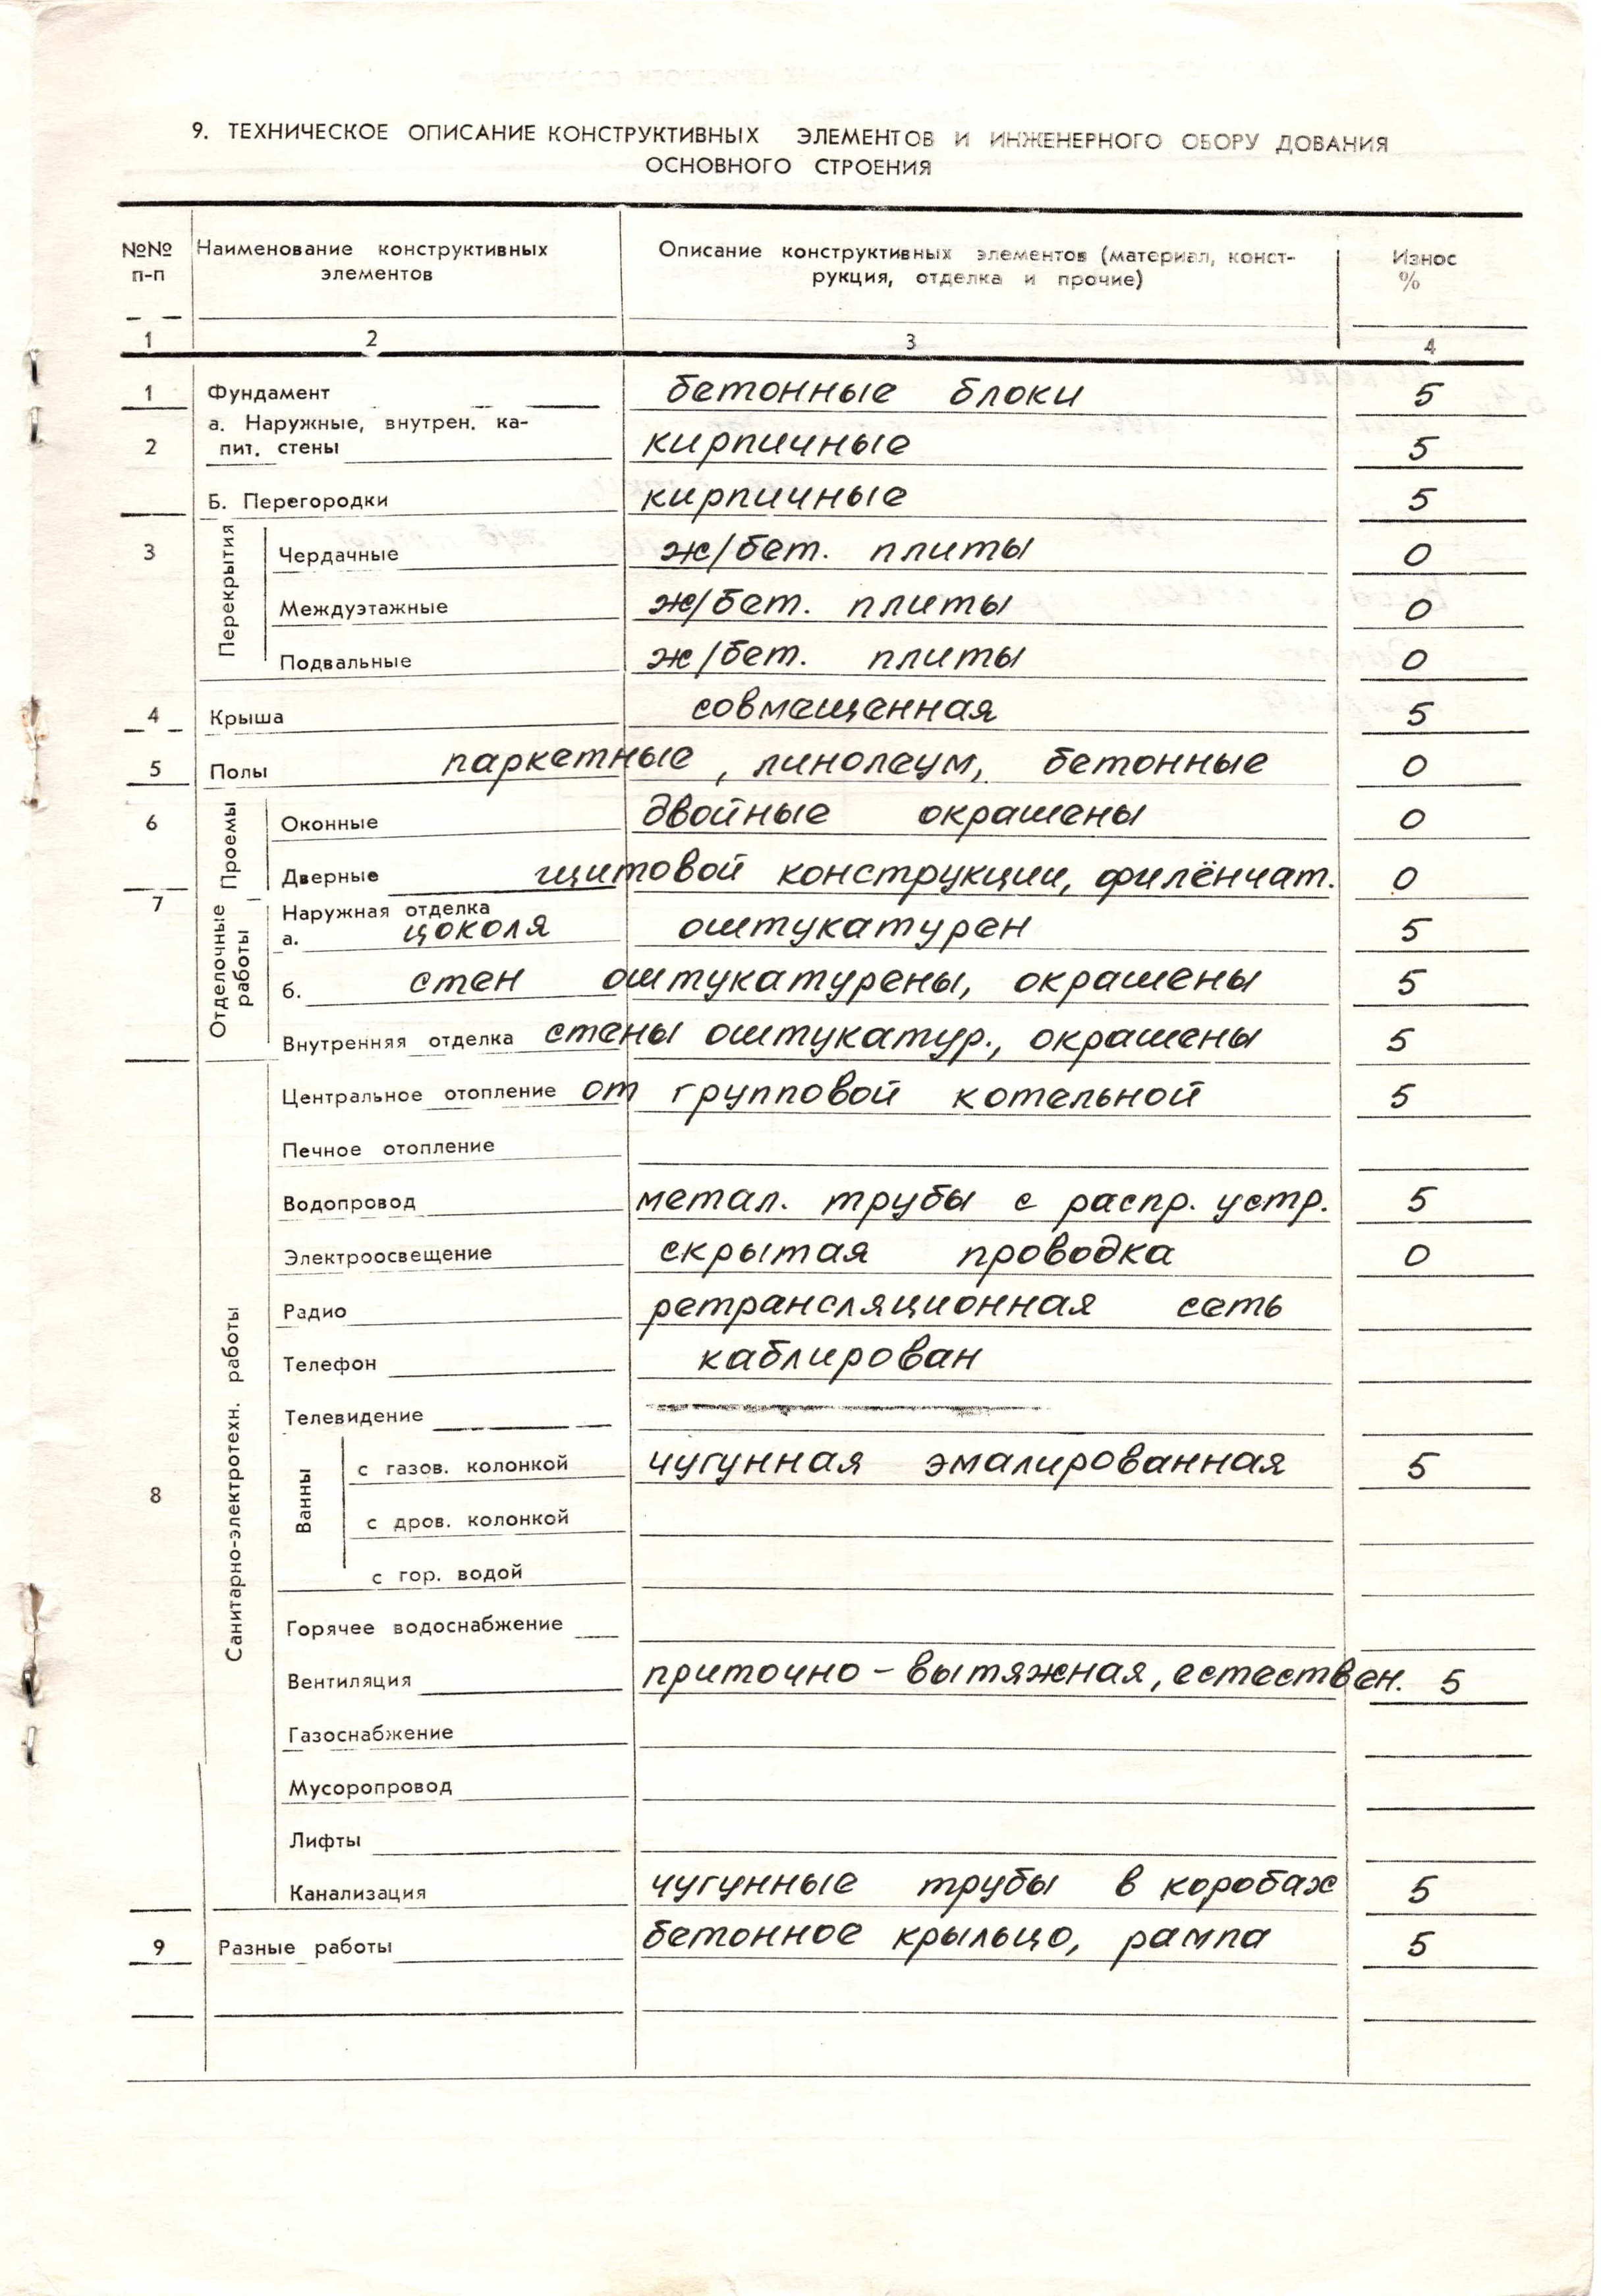 9. ТЕХНИЧЕСКОЕ ОПИСАНИЕ КОНСТРУКТИВНЫХ ЭЛЕМЕНТОВ И ИНЖЕНЕРНОГО ОБОРУ ДОВАНИЯ
ОСНОВНОГО СТРОЕНИЯ
№№ п-п Наименование конструктивных элементов Описание конструктивных элементов (материал, конст-рукция, отделка и прочие) Износ %
1 2 3 4
1 Фундамент бетонные блоки 5
а. Наружные, внутрен. ка-
2 пит. стены кирпичные 5
Б. Перегородки кирпичные 5
Перекрытия
3 Чердачные ж/бет. плиты 0
Междуэтажные ж/бет. плиты 0
Подвальные ж/бет. плиты 0
4 Крыша совмещенная 5
5 Полы паркетные, линолеум, бетонные 0
Проемы
6 Оконные двойные окрашены 0
Дверные щитовой конструкции, филёнчат. 0
7 Отделочные работы
Наружная отделка
а. цоколя оштукатурен 5
б. стен оштукатурены, окрашены 5
Внутренняя отделка стены оштукатур., окрашены 5
8 Санитарно-электротехн. работы
Центральное отопление от групповой котельной 5
Печное отопление
Водопровод метал. трубы с распр. устр. 5
Электроосвещение скрытая проводка 0
Радио ретрансляционная сеть
Телефон каблирован
Телевидение
Ванны
с газов. колонкой чугунная эмалированная 5
с дров. колонкой
с гор. водой
Горячее водоснабжение
Вентиляция приточно-вытяжная, естествен. 5
Газоснабжение
Мусоропровод
Лифты
Канализация чугунные трубы в коробах 5
9 Разные работы бетонное крыльцо, рампа 5